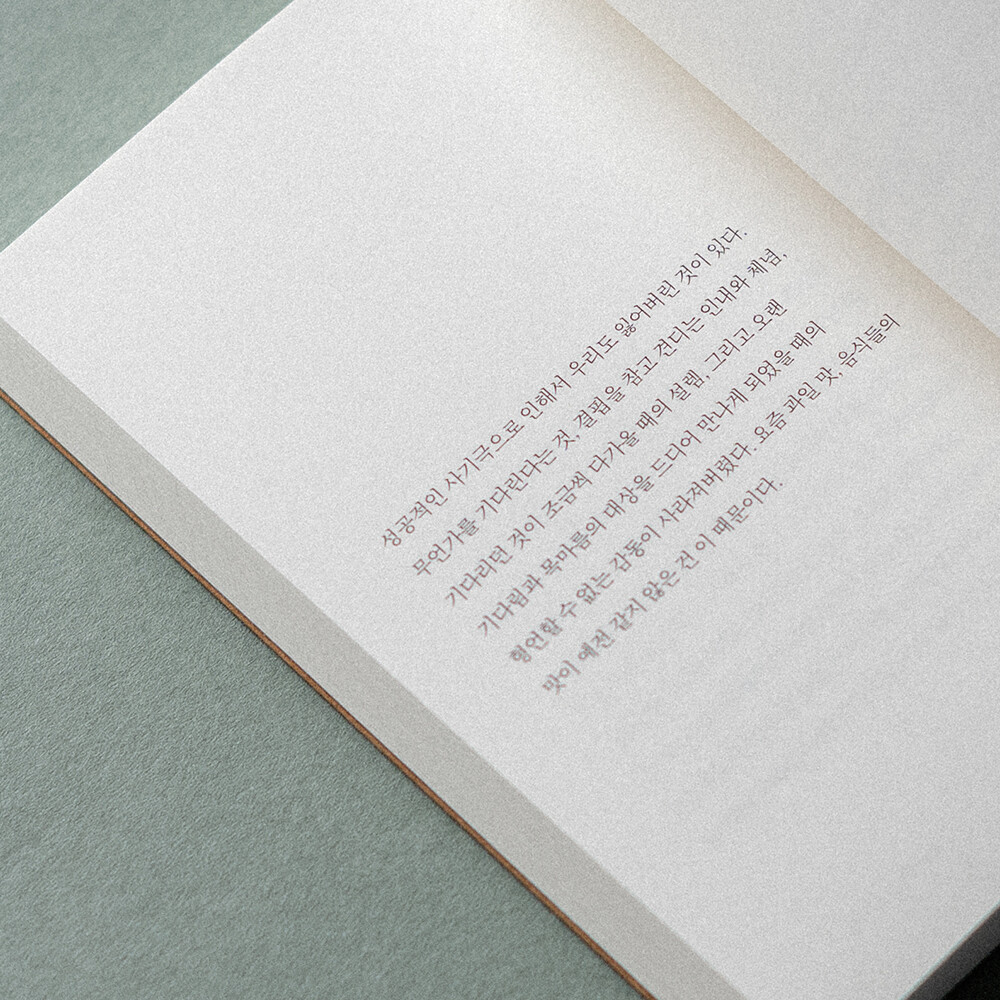 성공적인 사기극으로 인해서 우리도 잃어버린 것이 있다.
무언가를 기다린다는 것, 결핍을 참고 견디는 인내와 체념,
기다리던 것이 조금씩 다가올 때의 설렘, 그리고 오랜
기다림과 목마름의 대상을 드디어 만나게 되었을 때의
형언할 수 없는 감동이 사라져버렸다. 요즘 과일 맛, 음식들의
맛이 예전 같지 않은 건 이 때문이다.